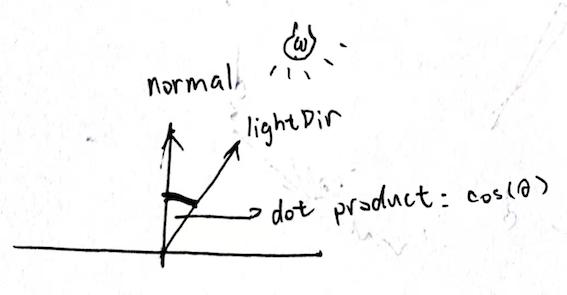 normal
lightDir
dot product: cos(θ)